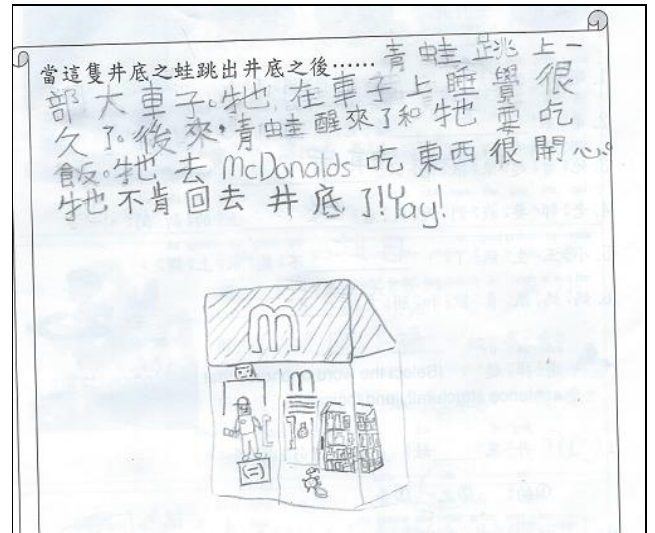 當這隻井底之蛙跳出井底之後……青蛙跳上一
部大車子。牠在車子上睡覺很
久了。後來，青蛙醒來了和牠要吃
飯。牠去McDonalds吃東西很開心。
牠不肯回去井底了!Yay!
m
m